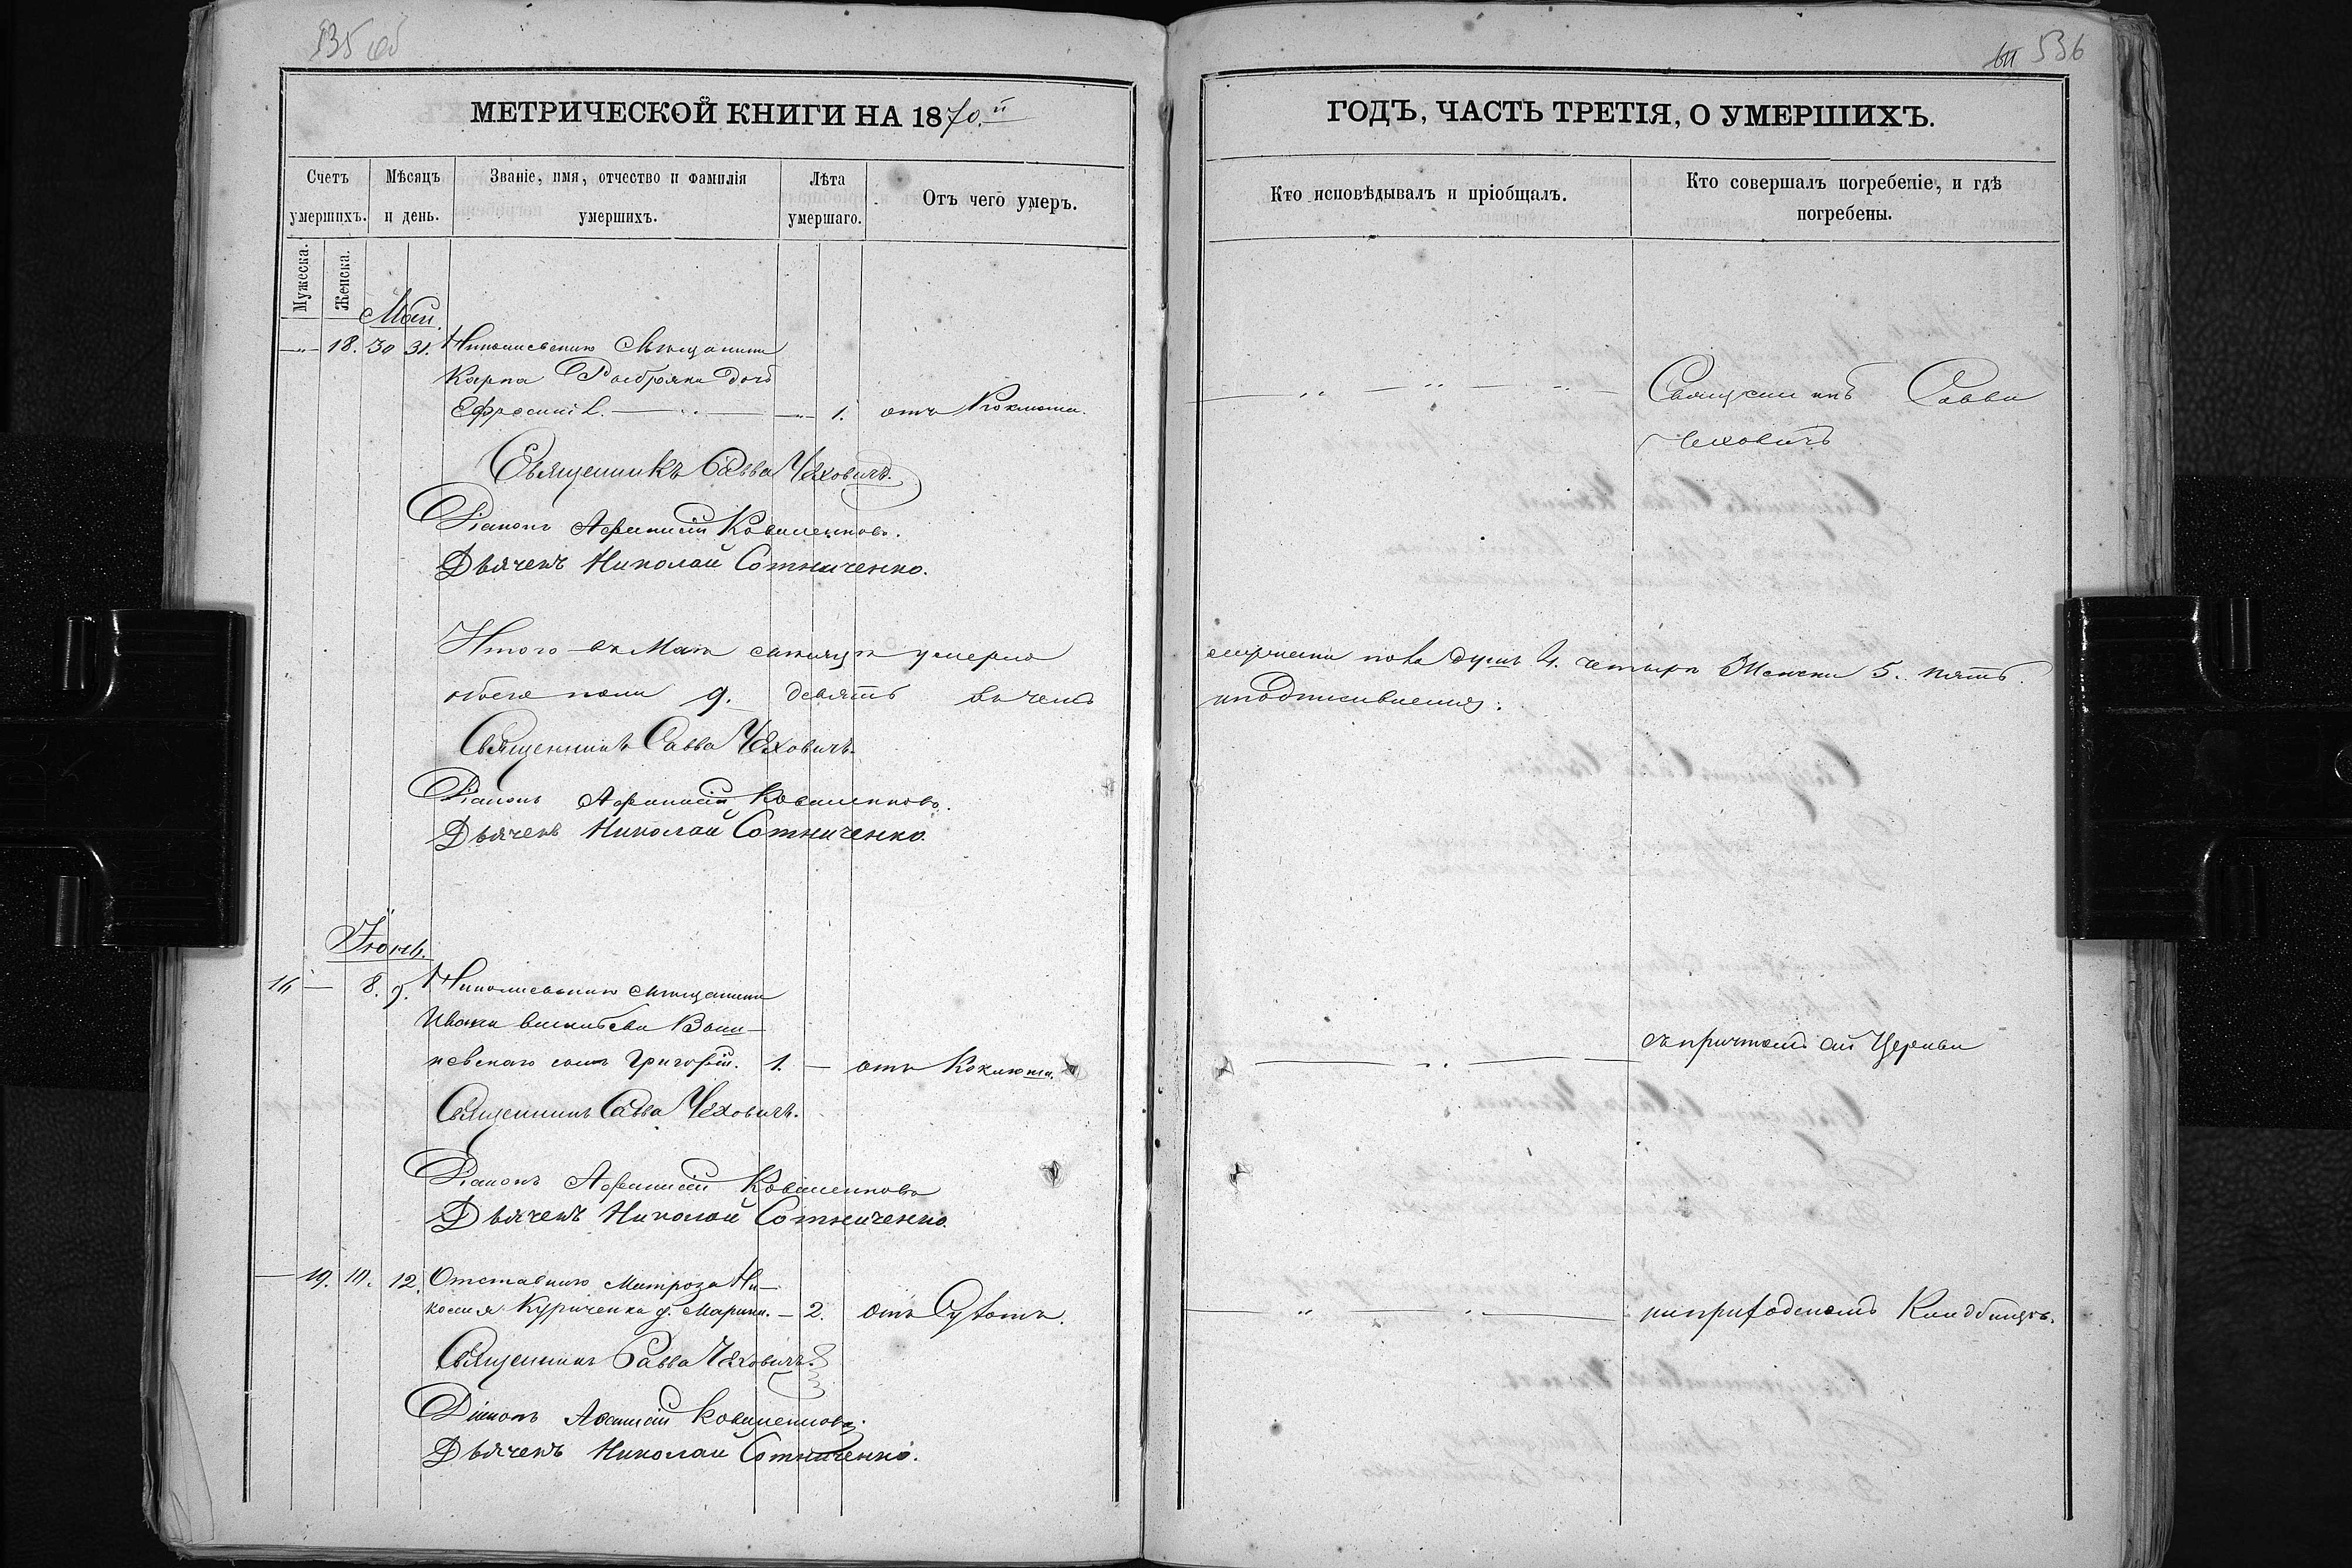 535 об
МЕТРИЧЕСКОЙ КНИГИ НА 1870.й
Счетъ умершихъ.
Мѣсяцъ и день.
Званіе, имя, отчество и фамилія умершихъ.
Лѣта умершаго.
Отъ чего умеръ.
Мужеска.
Женска.
Май.
— 18. 30 31. Николаевскаго мѣщанина
Карпа дочь
Ефросинія. — 1. отъ Коклюша.
Священникъ Савва Чехович.
Діаконъ Афанасій Коваленковъ.
Дьячекъ Николай Сотниченко.
Итого въ Маѣ мѣсяцѣ умерло
обего пола 9. девять въ чемъ
Священникъ Савва Чеховичъ.
Діаконъ Афанасій Коваленковъ.
Дьячекъ Николай Сотниченко.
Іюнь.
16 — 8. 9. Николаевскаго мѣщанина
Ивана Васильева
сынъ Григорій. 1. — отъ Коклюша.
Священникъ Савва Чеховичъ.
Діаконъ Афанасій Коваленковъ
Дьячекъ Николай Сотниченко.
— 19. 10. 12. Отставнаго Матроза Ни-
колая Куриченка д. Марина. — 2. отъ Сухотъ.
Священникъ Савва Чеховичъ.
Діаконъ Афанасій Коваленковъ.
Дьячекъ Николай Сотниченко.
536
ГОДЪ, ЧАСТЬ ТРЕТІЯ, О УМЕРШИХЪ.
Кто исповѣдывалъ и пріобщалъ.
Кто совершалъ погребеніе, и гдѣ погребены.
Священникъ Савва
Чеховичъ
пола душъ 4. четыри Женска 5. пять.
съ причтомъ ой Церкви
на приходскомъ Кладбищѣ.